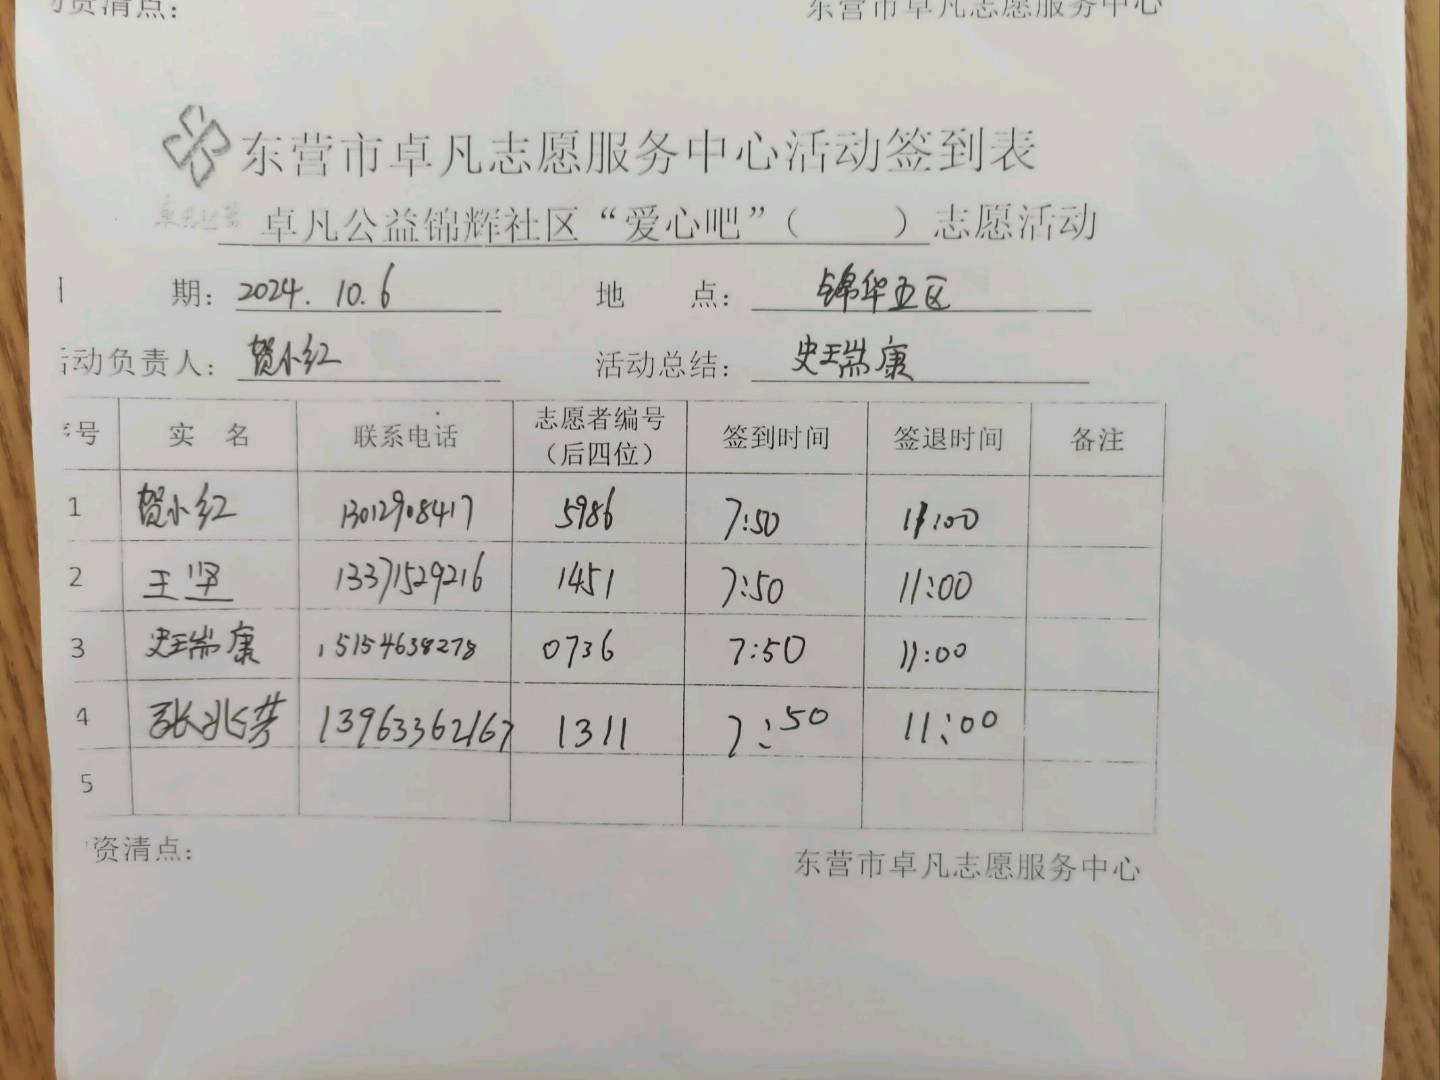 资清点：
东营市卓凡志愿服务中心
东营市卓凡志愿服务中心活动签到表
卓凡公益锦辉社区“爱心吧”（ ）志愿活动
期：2024.10.6 地 点：锦华五区
动负责人：贺小红 活动总结：史瑞康
号 实 名 联系电话 志愿者编号（后四位） 签到时间 签退时间 备注
1 贺小红 13012908417 5986 7:50 11:00
2 王坚 13371529216 1451 7:50 11:00
3 史瑞康 15154638278 0736 7:50 11:00
4 张兆芳 13963362167 1311 7:50 11:00
5
资清点：
东营市卓凡志愿服务中心